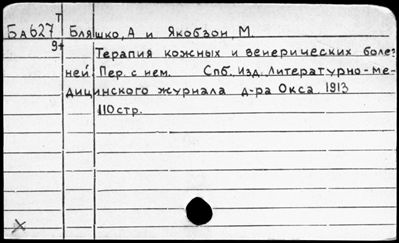 Т
Ба627 Бляшко, А и Якобзон, М.
9+
Терапия кожных и венерических болез
ней. Пер. с нем. Спб. Изд. Литературно-ме-
дицинского журнала д-ра Окса 1913
110 стр.